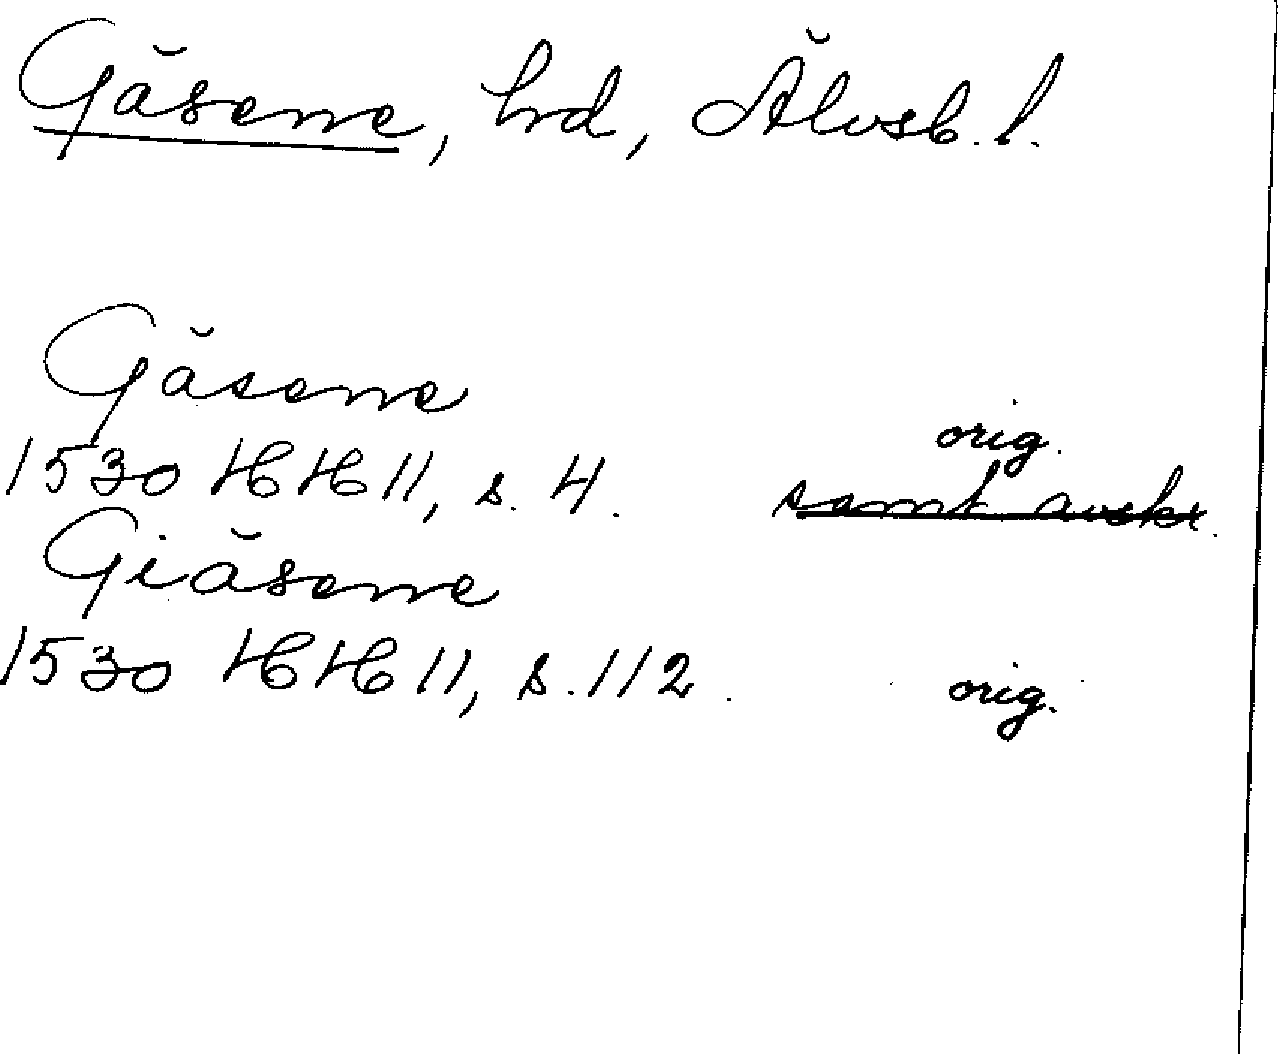 Gäsene, hd, Älvsb. l.
Gäsene
orig.
1530 HH 11, s. 4. samt avskr.
Giäsene
1530 HH 11, s. 112. orig.